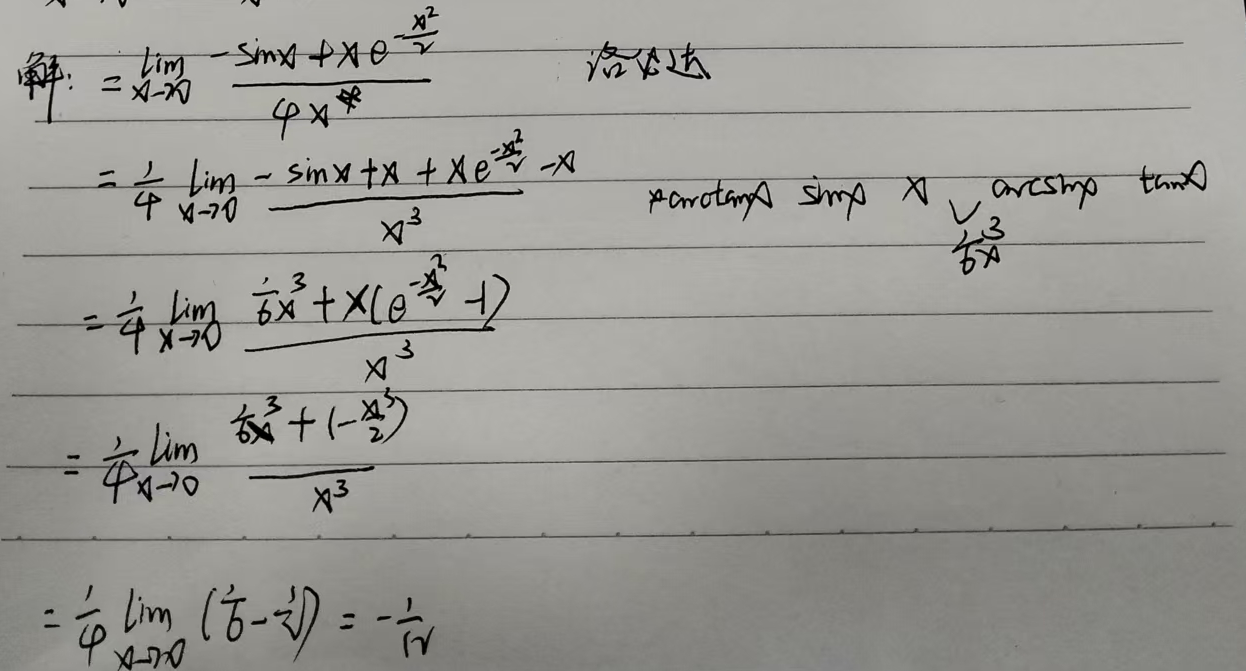 解: = lim x→0 (-sinx + x e^{-x²/2}) / 4x 洛必达
= 1/4 lim x→0 (-sinx + x + x e^{-x²/2} - x) / x³ arctanx sinx x arcsinx tanx
1/6 x³
= 1/4 lim x→0 (1/6 x³ + x(e^{-x²/2} - 1)) / x³
= 1/4 lim x→0 (1/6 x³ + (-x³/2)) / x³
= 1/4 lim x→0 (1/6 - 1/2) = -1/12